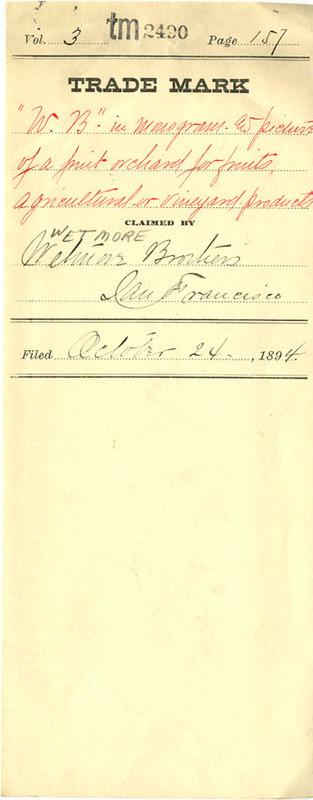 Vol. 3 tm 2490 Page 157
TRADE MARK
"W. B" in monogram & picture
of a fruit orchard for fruits,
agricultural or vineyard products
CLAIMED BY
WETMORE
Wetmore Brothers
San Francisco
Filed October 24, 1894.